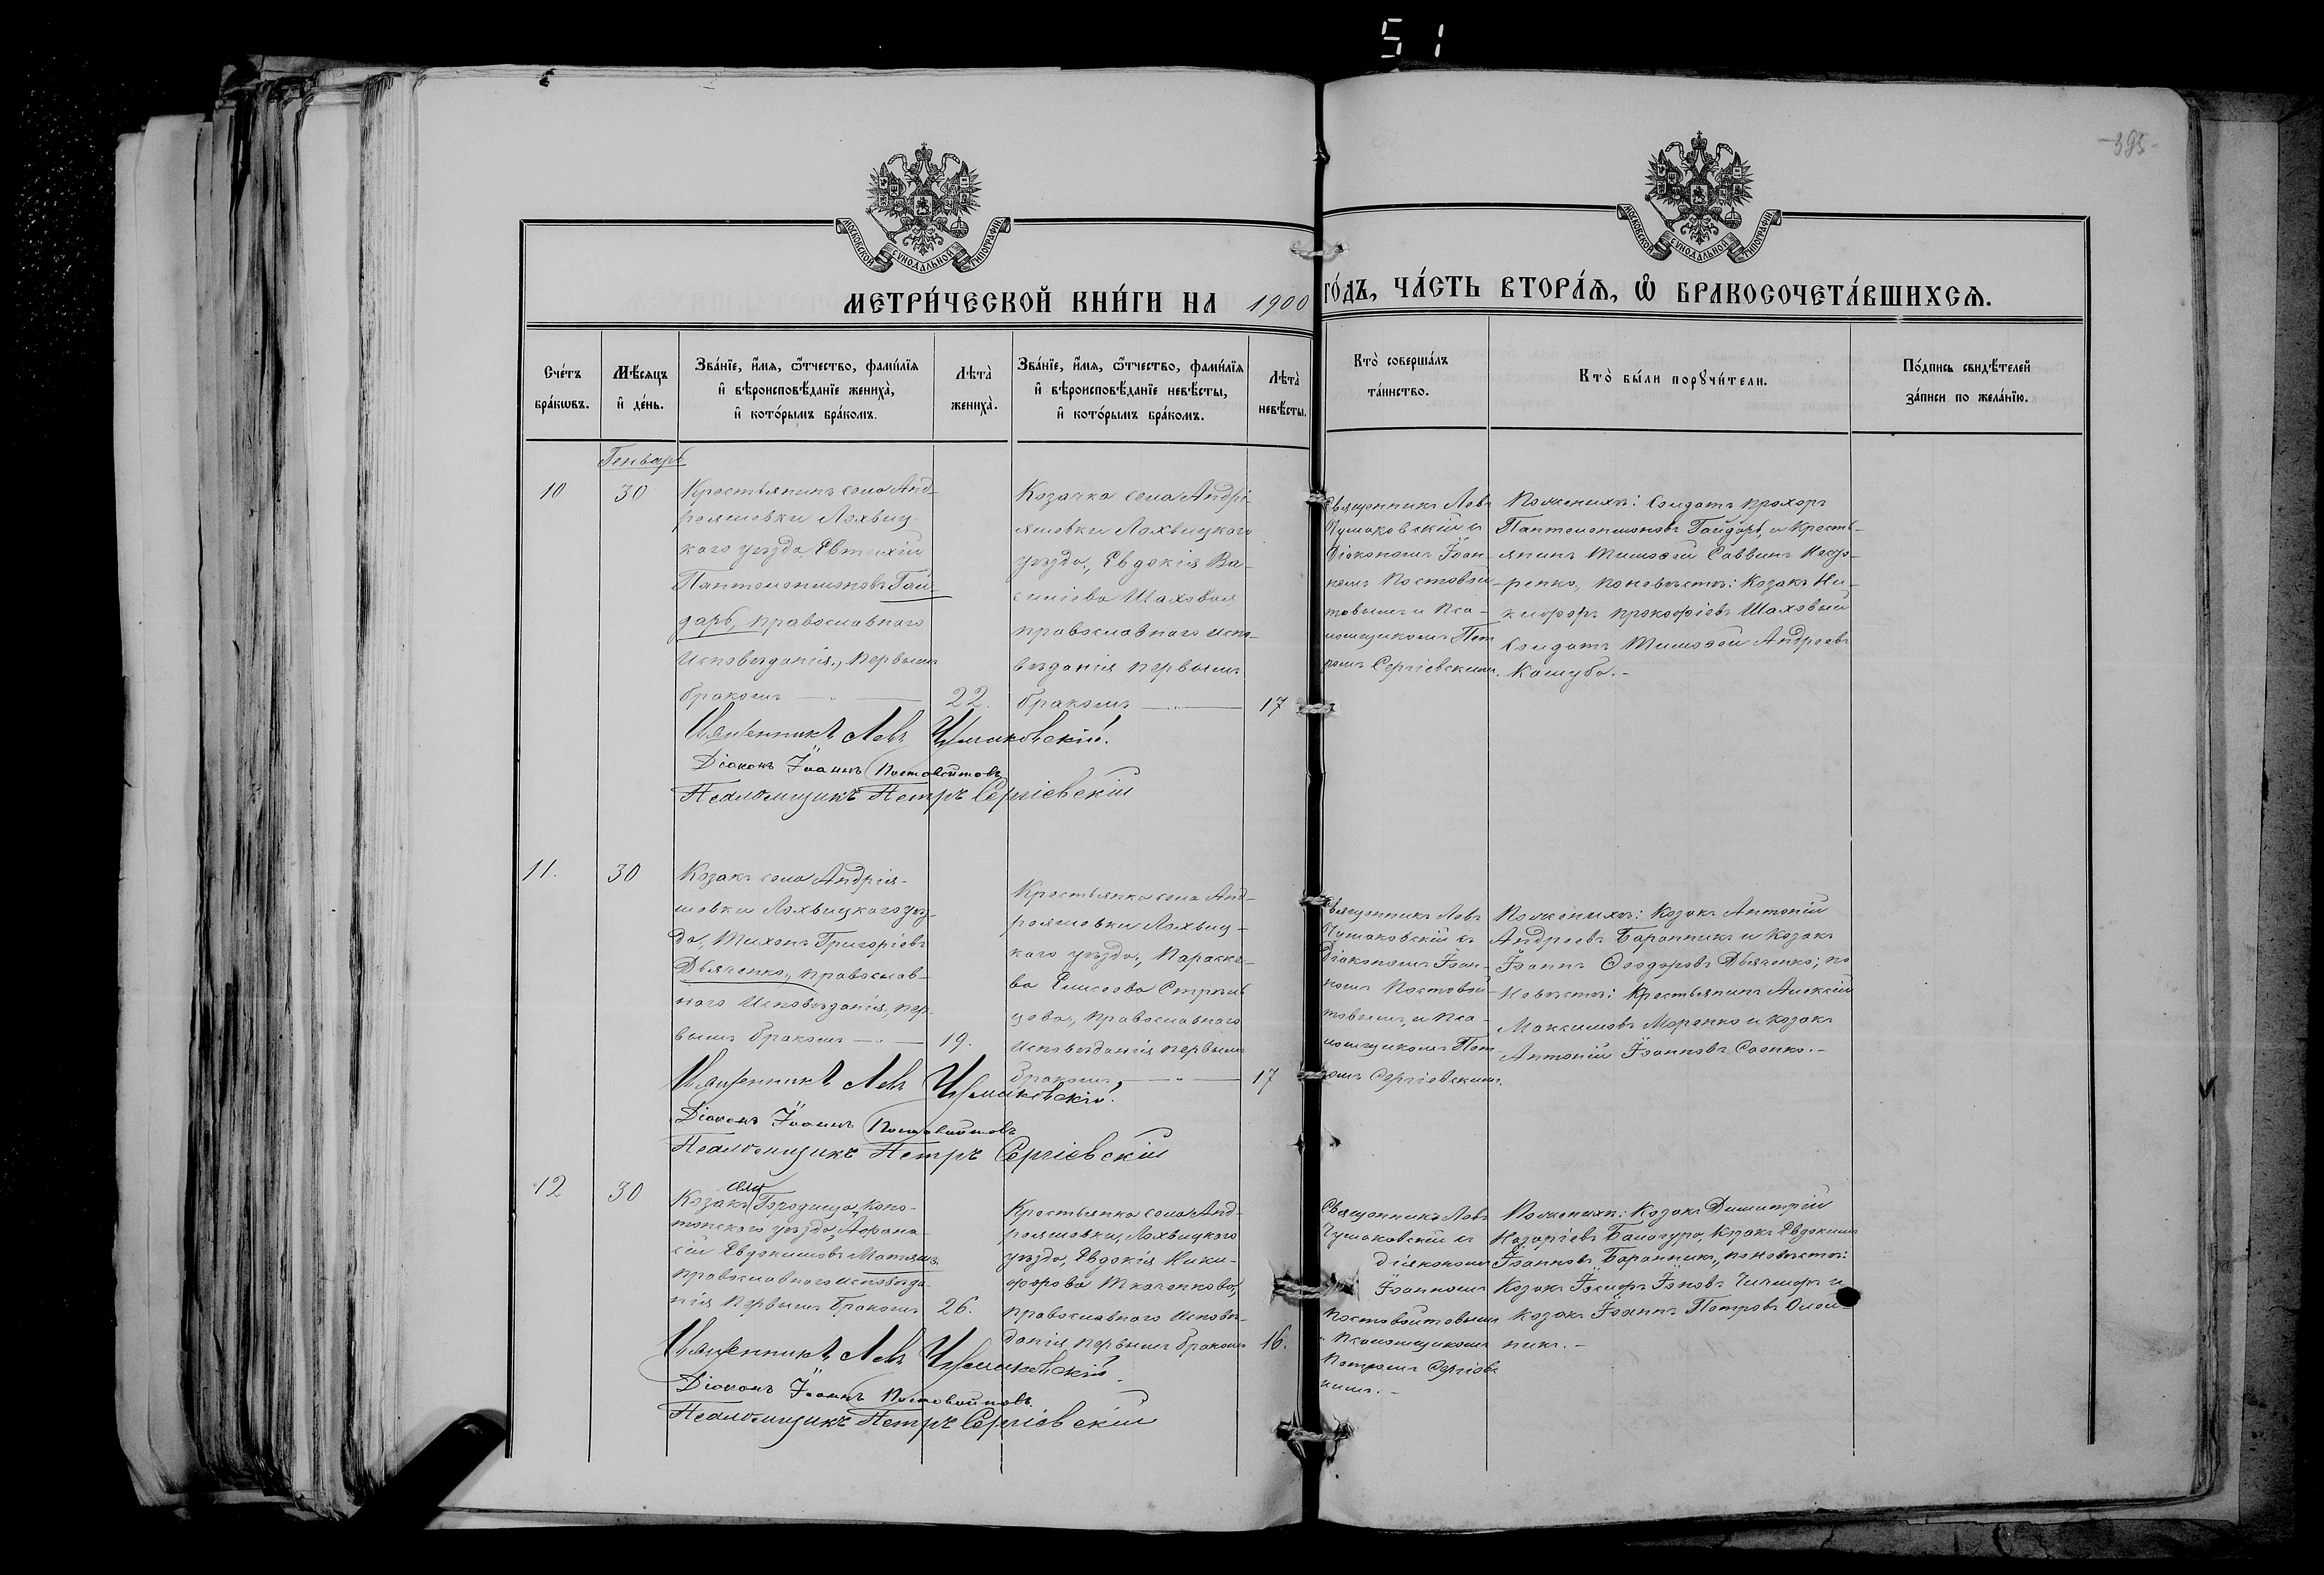 51
395
МОСКОВСКОЙ СѴНОДАЛЬНОЙ ТИПОГРАФІИ.
МОСКОВСКОЙ СѴНОДАЛЬНОЙ ТИПОГРАФІИ.
МЕТРИ́ЧЕСКОЙ КНИ́ГИ НА 1900 ГО́ДЪ, ЧА́СТЬ ВТОРА́Ѧ, Ѽ БРАКОСОЧЕТА́ВШИХСѦ.
Сче́тъ
бра́кѡвъ.
Мѣ́сѧцъ
и҆ де́нь.
Зва́нїе, и҆́мѧ, ѻ҆́тчество, фами́лїѧ
и҆ вѣроисповѣ́данїе жениха̀,
и҆ кото́рымъ бра́комъ.
Лѣта̀
жениха̀.
Зва́нїе, и҆́мѧ, ѻ҆́тчество, фами́лїѧ
и҆ вѣроисповѣ́данїе невѣ́сты,
и҆ кото́рымъ бра́комъ.
Лѣта̀
невѣ́сты.
Кто̀ соверша́лъ
та́инство.
Кто̀ бы́ли порꙋчи́тели.
По́дпись свидѣ́телей
за́писи по жела́нїю.
Генварь
10
30
Крестьянинъ села Анд-
реяшовки Лохвиц-
каго уѣзда Евтихій
Пантолеимоновъ Гай-
дарь, православнаго
исповѣданія, первымъ
бракомъ
22.
Козачка села Андрі-
яшовки Лохвицкаго
уѣзда, Евдокія Ва-
силіева Шаховая
православнаго испо-
вѣданія первымъ
бракомъ
17
Священникъ Левъ
Чумаковскій съ
Діакономъ Іоан-
номъ Постовой-
товымъ и Пса-
ломщикомъ Пет
ромъ Сергіевскимъ.
По женихѣ: Солдатъ Прохоръ
Пантолеимоновъ Гайдарь, и Кресть-
янинъ Тимофей Саввинъ
По невѣстѣ: Козакъ Ни-
кифоръ Прокофіевъ Шаховый
Солдатъ Тимофей Андреевъ
Кашуба.-
Священникъ Левъ Чумаковскій.
Діаконъ Іоаннъ Постовойтовъ
Псаломщикъ Петръ Сергіевскій
11.
30
Козакъ села Андрія-
шовки Лохвицкаго уѣз-
да, Тихонъ Григоріевъ
Дьяченко, православ-
наго исповѣданія, пер-
вымъ бракомъ
19.
Крестьянка села Анд-
реяшовки Лохвиц-
каго уѣзда, Параске-
ва Елисеева Стрѣль
цева, православнаго
исповѣданія первымъ
бракомъ,
17
Священникъ Левъ
Чумаковскій съ
Діакономъ Іоан-
номъ Постовой-
товымъ, и Пса-
ломщикомъ Пет
ромъ Сергіевскимъ.
По женихѣ: Козакъ Антоній
Андреевъ Баранникъ и Козакъ
Іоаннъ Ѳеодоровъ Дьяченко; по
невѣстѣ: Крестьянинъ Алексѣй
Максимовъ Маренко и Козакъ
Антоній Іоанновъ Саенко.-
Священникъ Левъ Чумаковскій.
Діаконъ Іоаннъ Постовойтовъ
Псаломщикъ Петръ Сергіевскій
12
30
села
Козакъ Городища, Коно-
топскаго уѣзда, Афана-
сій Евдокимовъ Матяшъ
православнаго исповѣда-
нія первымъ бракомъ
26.
Крестьянка села Анд-
реяшовки, Лохвицкаго
уѣзда, Евдокія Ники-
форова Ткаченкова,
православнаго исповѣ-
данія первымъ бракомъ
16.
Священникъ Левъ
Чумаковскій съ
діакономъ
Іоанномъ
Постовойтовымъ
и Псаломщикомъ
Петромъ Сергіевс
кимъ.-
По женихѣ: Козакъ Димитрій
Назаріевъ Балагура, Козакъ Евдокимъ
Іоанновъ Баранникъ, по невѣстѣ:
Козакъ Іосифъ Іоновъ и
Козакъ Іоаннъ Петровъ Олей-
никъ.-
Священникъ Левъ Чумаковскій.
Діаконъ Іоаннъ Постовойтовъ
Псаломщикъ Петръ Сергіевскій